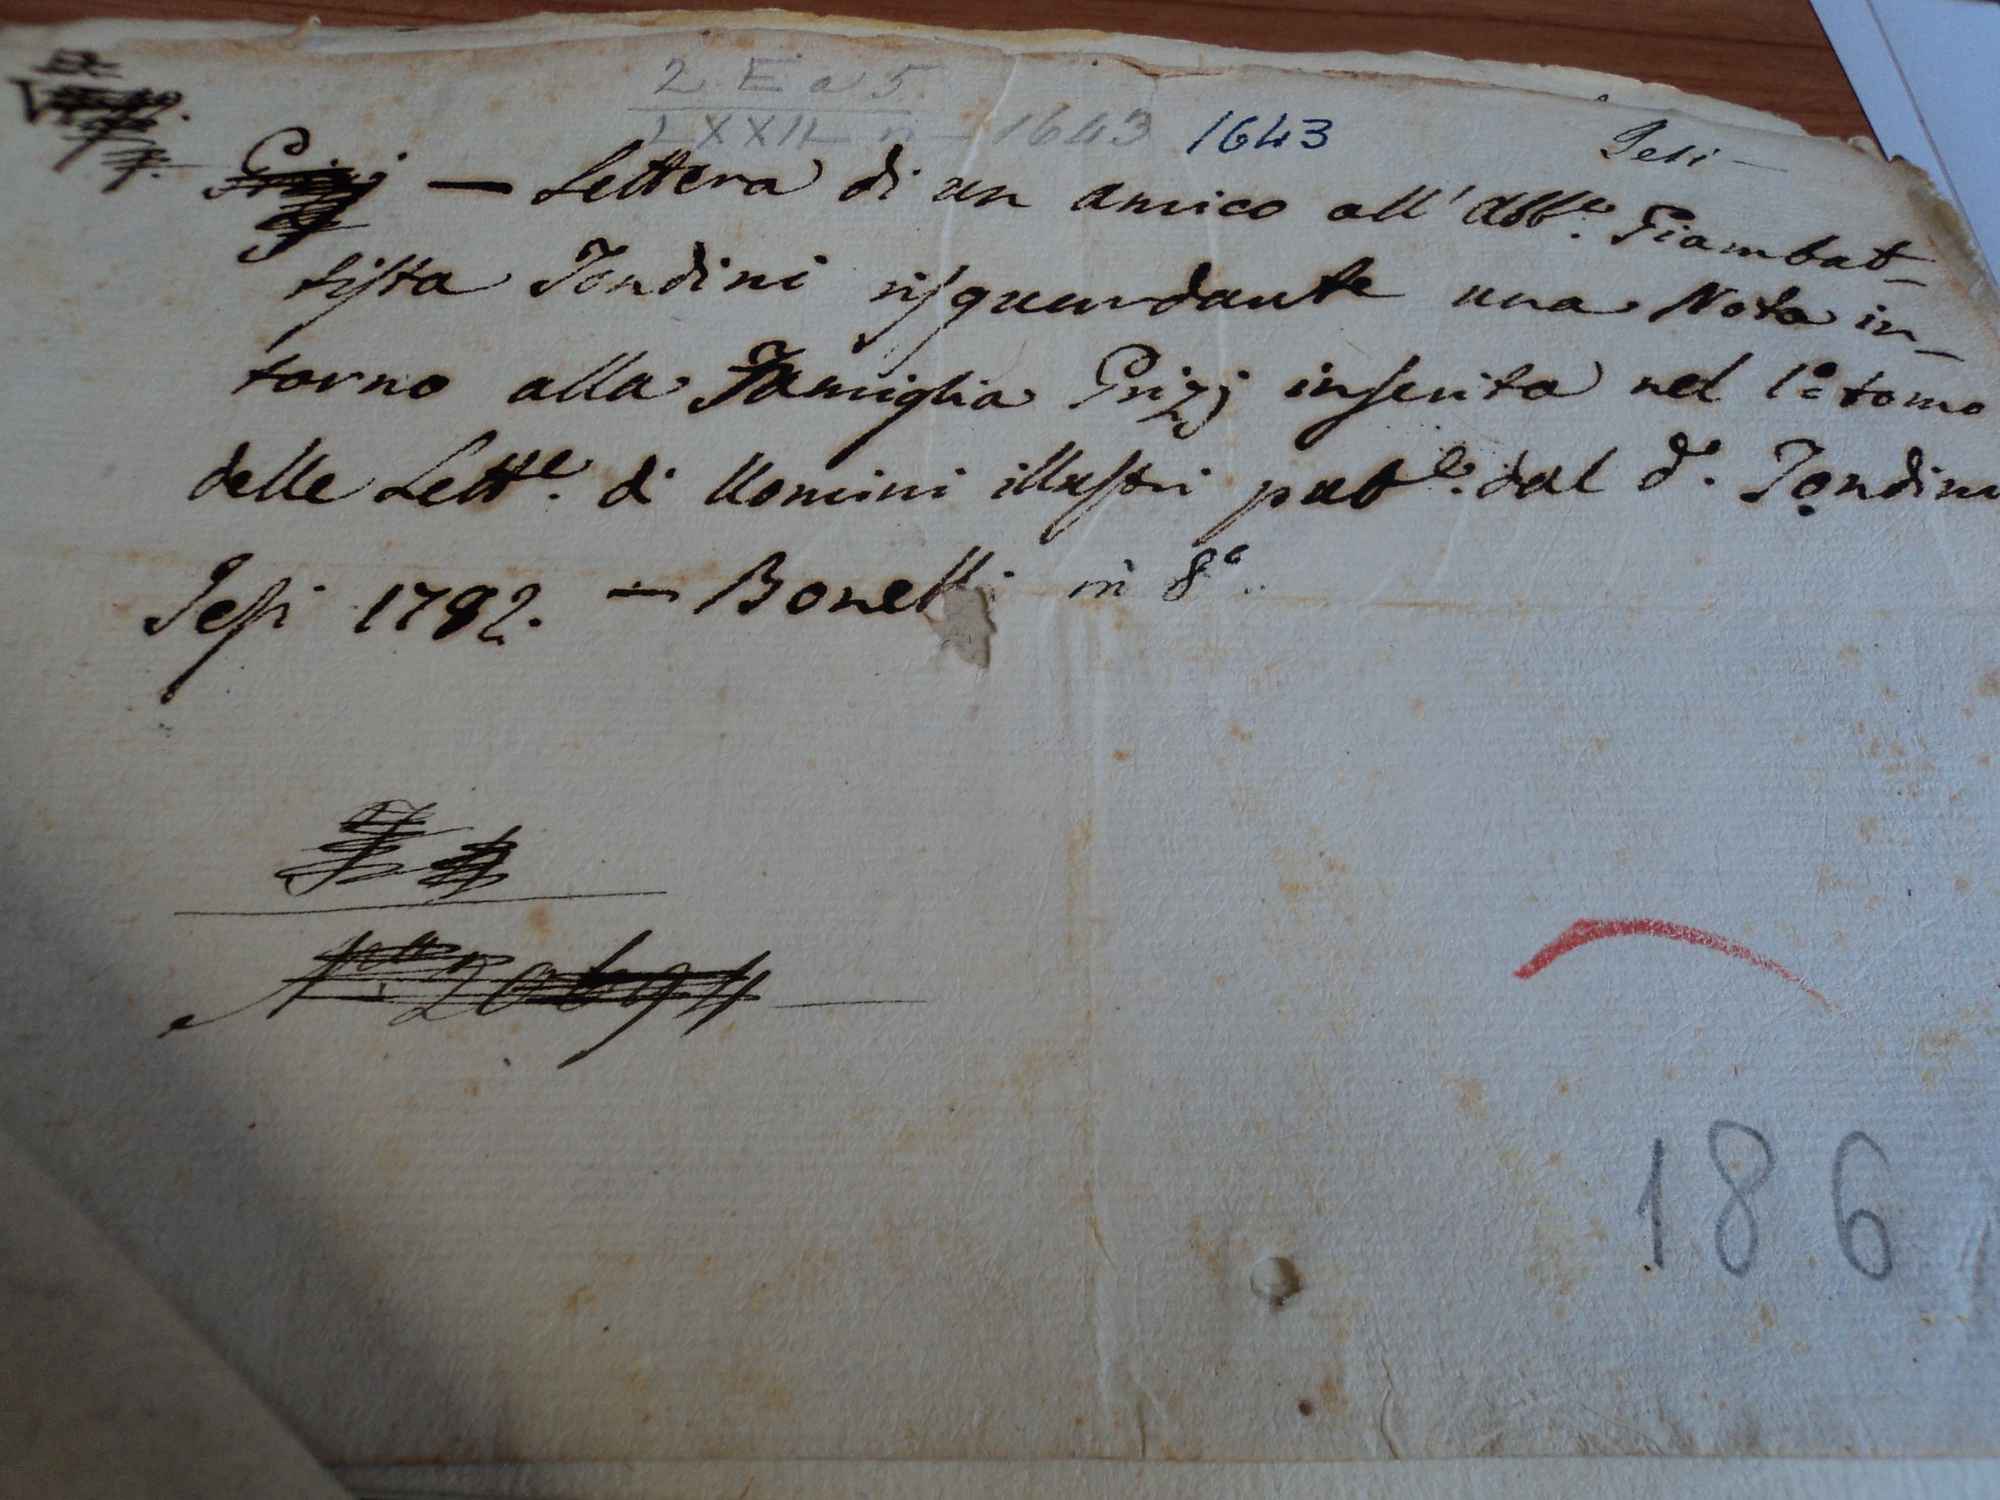 2. E a 5.
LXXII n - 1643 1643 Jesi -
Grizj — Lettera di un amico all' Abb.e Giambat-
tista Tondini risguardante una Nota in-
torno alla Famiglia Grizj inserita nel 1° tomo
delle Lett.e di Uomini illustri pub.e dal d.o Tondini
Jesi 1782. — Bonelli in 8°.
186